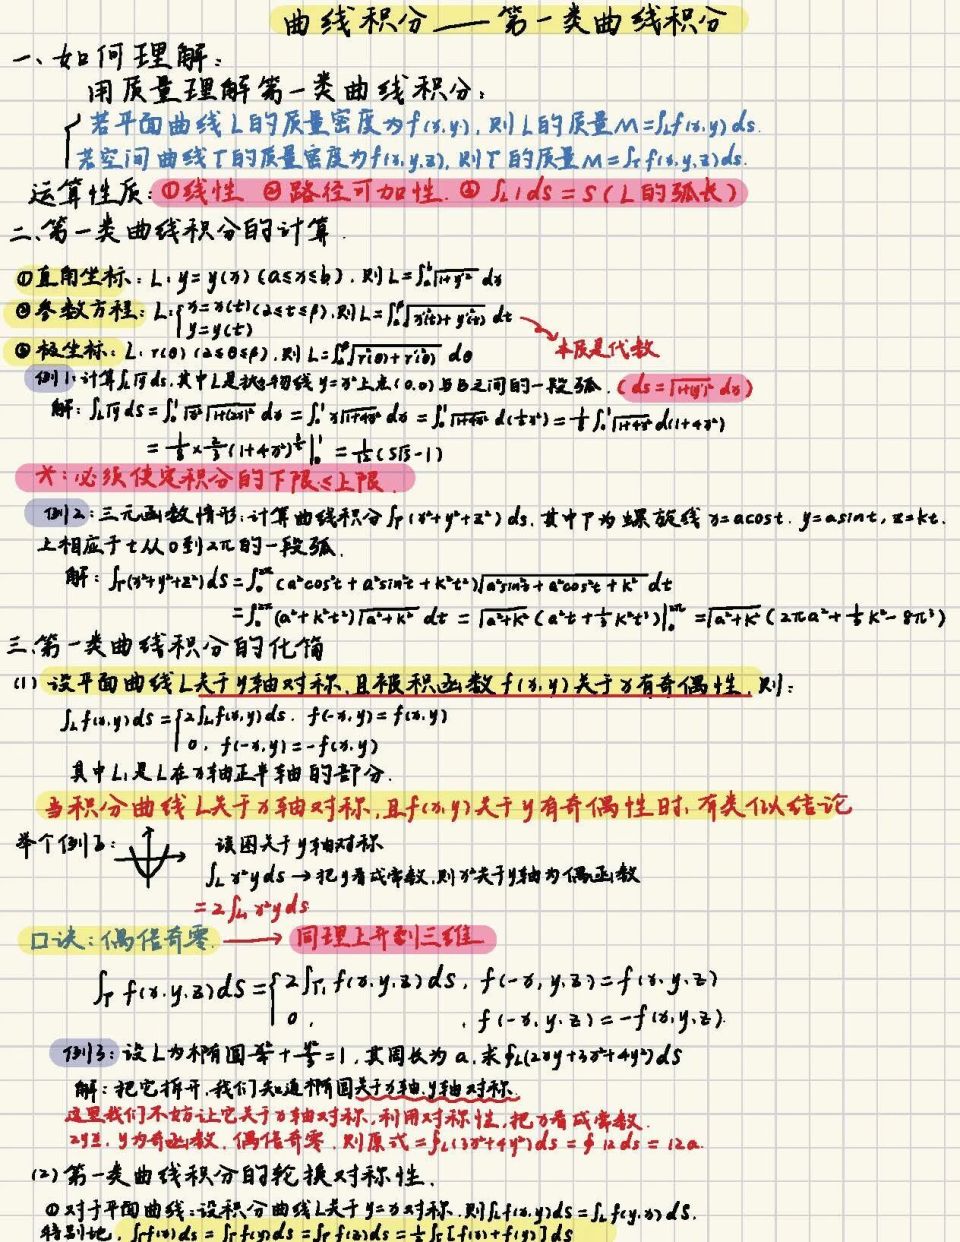 曲线积分——第一类曲线积分
一、如何理解：
用质量理解第一类曲线积分：
若平面曲线L的质量密度为f(x,y),则L的质量M=∫_L f(x,y)ds.
若空间曲线Γ的质量密度为f(x,y,z),则Γ的质量M=∫_Γ f(x,y,z)ds.
运算性质：①线性 ②路径可加性. ③ ∫_L 1ds=S(L的弧长)
二、第一类曲线积分的计算.
①直角坐标：L:y=y(x)(a≤x≤b).则L=∫_a^b √(1+y'²) dx
②参数方程：L:{x=x(t)(α≤t≤β),则L=∫_α^β √(x'²(t)+y'²(t)) dt
y=y(t)
本质是代数
③极坐标：L:r(θ)(α≤θ≤β),则L=∫_α^β √(r²(θ)+r'²(θ)) dθ
例1:计算∫_L √y ds,其中L是抛物线y=x²上点(0,0)与B之间的一段弧.(ds=√(1+(y')²) dx)
解：∫_L √y ds=∫_0^1 √x² √(1+(2x)²) dx=∫_0^1 x√(1+4x²) dx=∫_0^1 √(1+4x²) d(½x²)=⅛∫_0^1 √(1+4x²) d(1+4x²)
=⅛×⅔(1+4x²)^{3/2}|_0^1=1/12(5√5-1)
*：必须使定积分的下限≤上限.
例2:三元函数情形:计算曲线积分∫_Γ(x²+y²+z²)ds,其中Γ为螺旋线x=acost.y=asint,z=kt.
上相应于t从0到2π的一段弧.
解：∫_Γ(x²+y²+z²)ds=∫_0^{2π}(a²cos²t+a²sin²t+k²t²)√(a²sin²t+a²cos²t+k²) dt
=∫_0^{2π}(a²+k²t²)√(a²+k²) dt=√(a²+k²)(a²t+⅓k²t³)|_0^{2π}=√(a²+k²)(2πa²+⅓k²·8π³)
三.第一类曲线积分的化简
(1)设平面曲线L关于y轴对称,且被积函数f(x,y)关于x有奇偶性,则：
∫_L f(x,y)ds={2∫_{L₁}f(x,y)ds. f(-x,y)=f(x,y)
0. f(-x,y)=-f(x,y)
其中L₁是L在x轴正半轴的部分.
当积分曲线L关于x轴对称,且f(x,y)关于y有奇偶性时,有类似结论
举个例子：
该图关于y轴对称
∫_L x²yds→把y看成常数,则x²关于y轴为偶函数
=2∫_{L₁}x²yds
口诀：偶倍奇零.→同理上升到三维
∫_Γ f(x,y,z)ds={2∫_{Γ₁}f(x,y,z)ds, f(-x,y,z)=f(x,y,z)
0, , f(-x,y,z)=-f(x,y,z).
例3:设L为椭圆x²/4+y²/3=1,其周长为a,求∮_L(2xy+3x²+4y²)ds
解：把它拆开,我们知道椭圆关于x轴,y轴对称.
这里我们不妨让它关于x轴对称,利用对称性,把x看成常数.
2y². y为奇函数. 偶倍奇零. 则原式=∮_L(3x²+4y²)ds=∮12ds=12a.
(2)第一类曲线积分的轮换对称性.
①对于平面曲线:设积分曲线L关于y=x对称.则∫_L f(x,y)ds=∫_L f(y,x)ds.
特别地,∫_Γ f(x)ds=∫_Γ f(y)ds=∫_Γ f(z)ds=½∫_Γ[f(x)+f(y)]ds